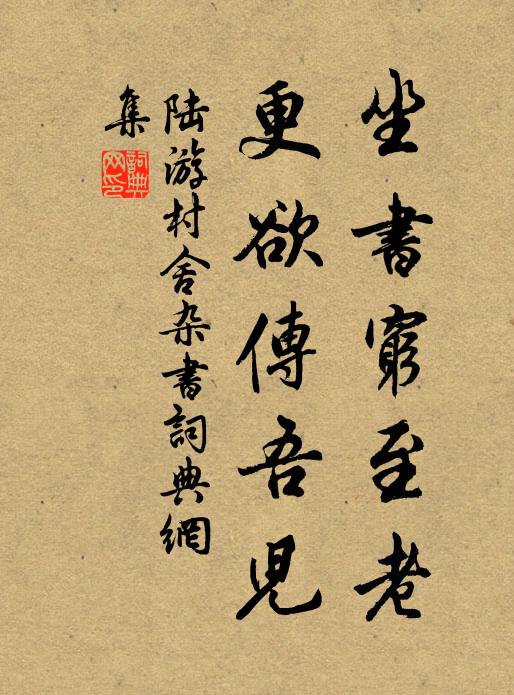 坐書窮至老
更欲傳吾兒
陆游村舍杂書詞典網
集
詞典網印